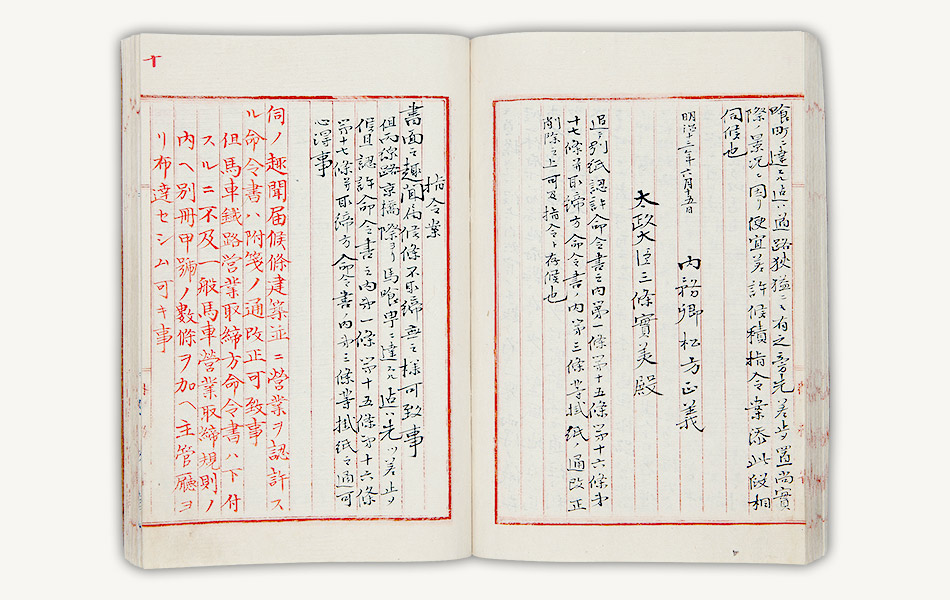 喰町ニ達スル迠ハ道路狭隘ニ有之ニ付先ツ差止メ置尚實
際ノ景況ニ因リ便宜差許候積指令案添此段相
伺候也
明治十三年六月十五日
内務卿松方正義
太政大臣三條實美殿
追テ別紙認許命令書之内第一條第十五條第十六條第
十七條并取締方命令書ノ内第三條等掛紙ノ通改正
削除之上可及指令ト存候也
指令案
書面之趣聞届候條不取締無之様可致事
但而線路京橋際ヨリ馬喰町ニ達スル迠ハ先ツ差止メ
候且認許命令書之内第一條第十五條第十六條
第十七條并取締方命令書ノ内第三條等掛紙之通可
心得事
伺ノ趣聞届候條建築並ニ營業ヲ認許ス
ル命令書ハ附箋ノ通改正可致事
但馬車鐵路営業取締方命令書ハ下付
スルニ不及一般馬車營業取締規則ノ
内ヘ別冊甲號ノ數條ヲ加ヘ主管廳ヨ
リ布達セシム可キ事